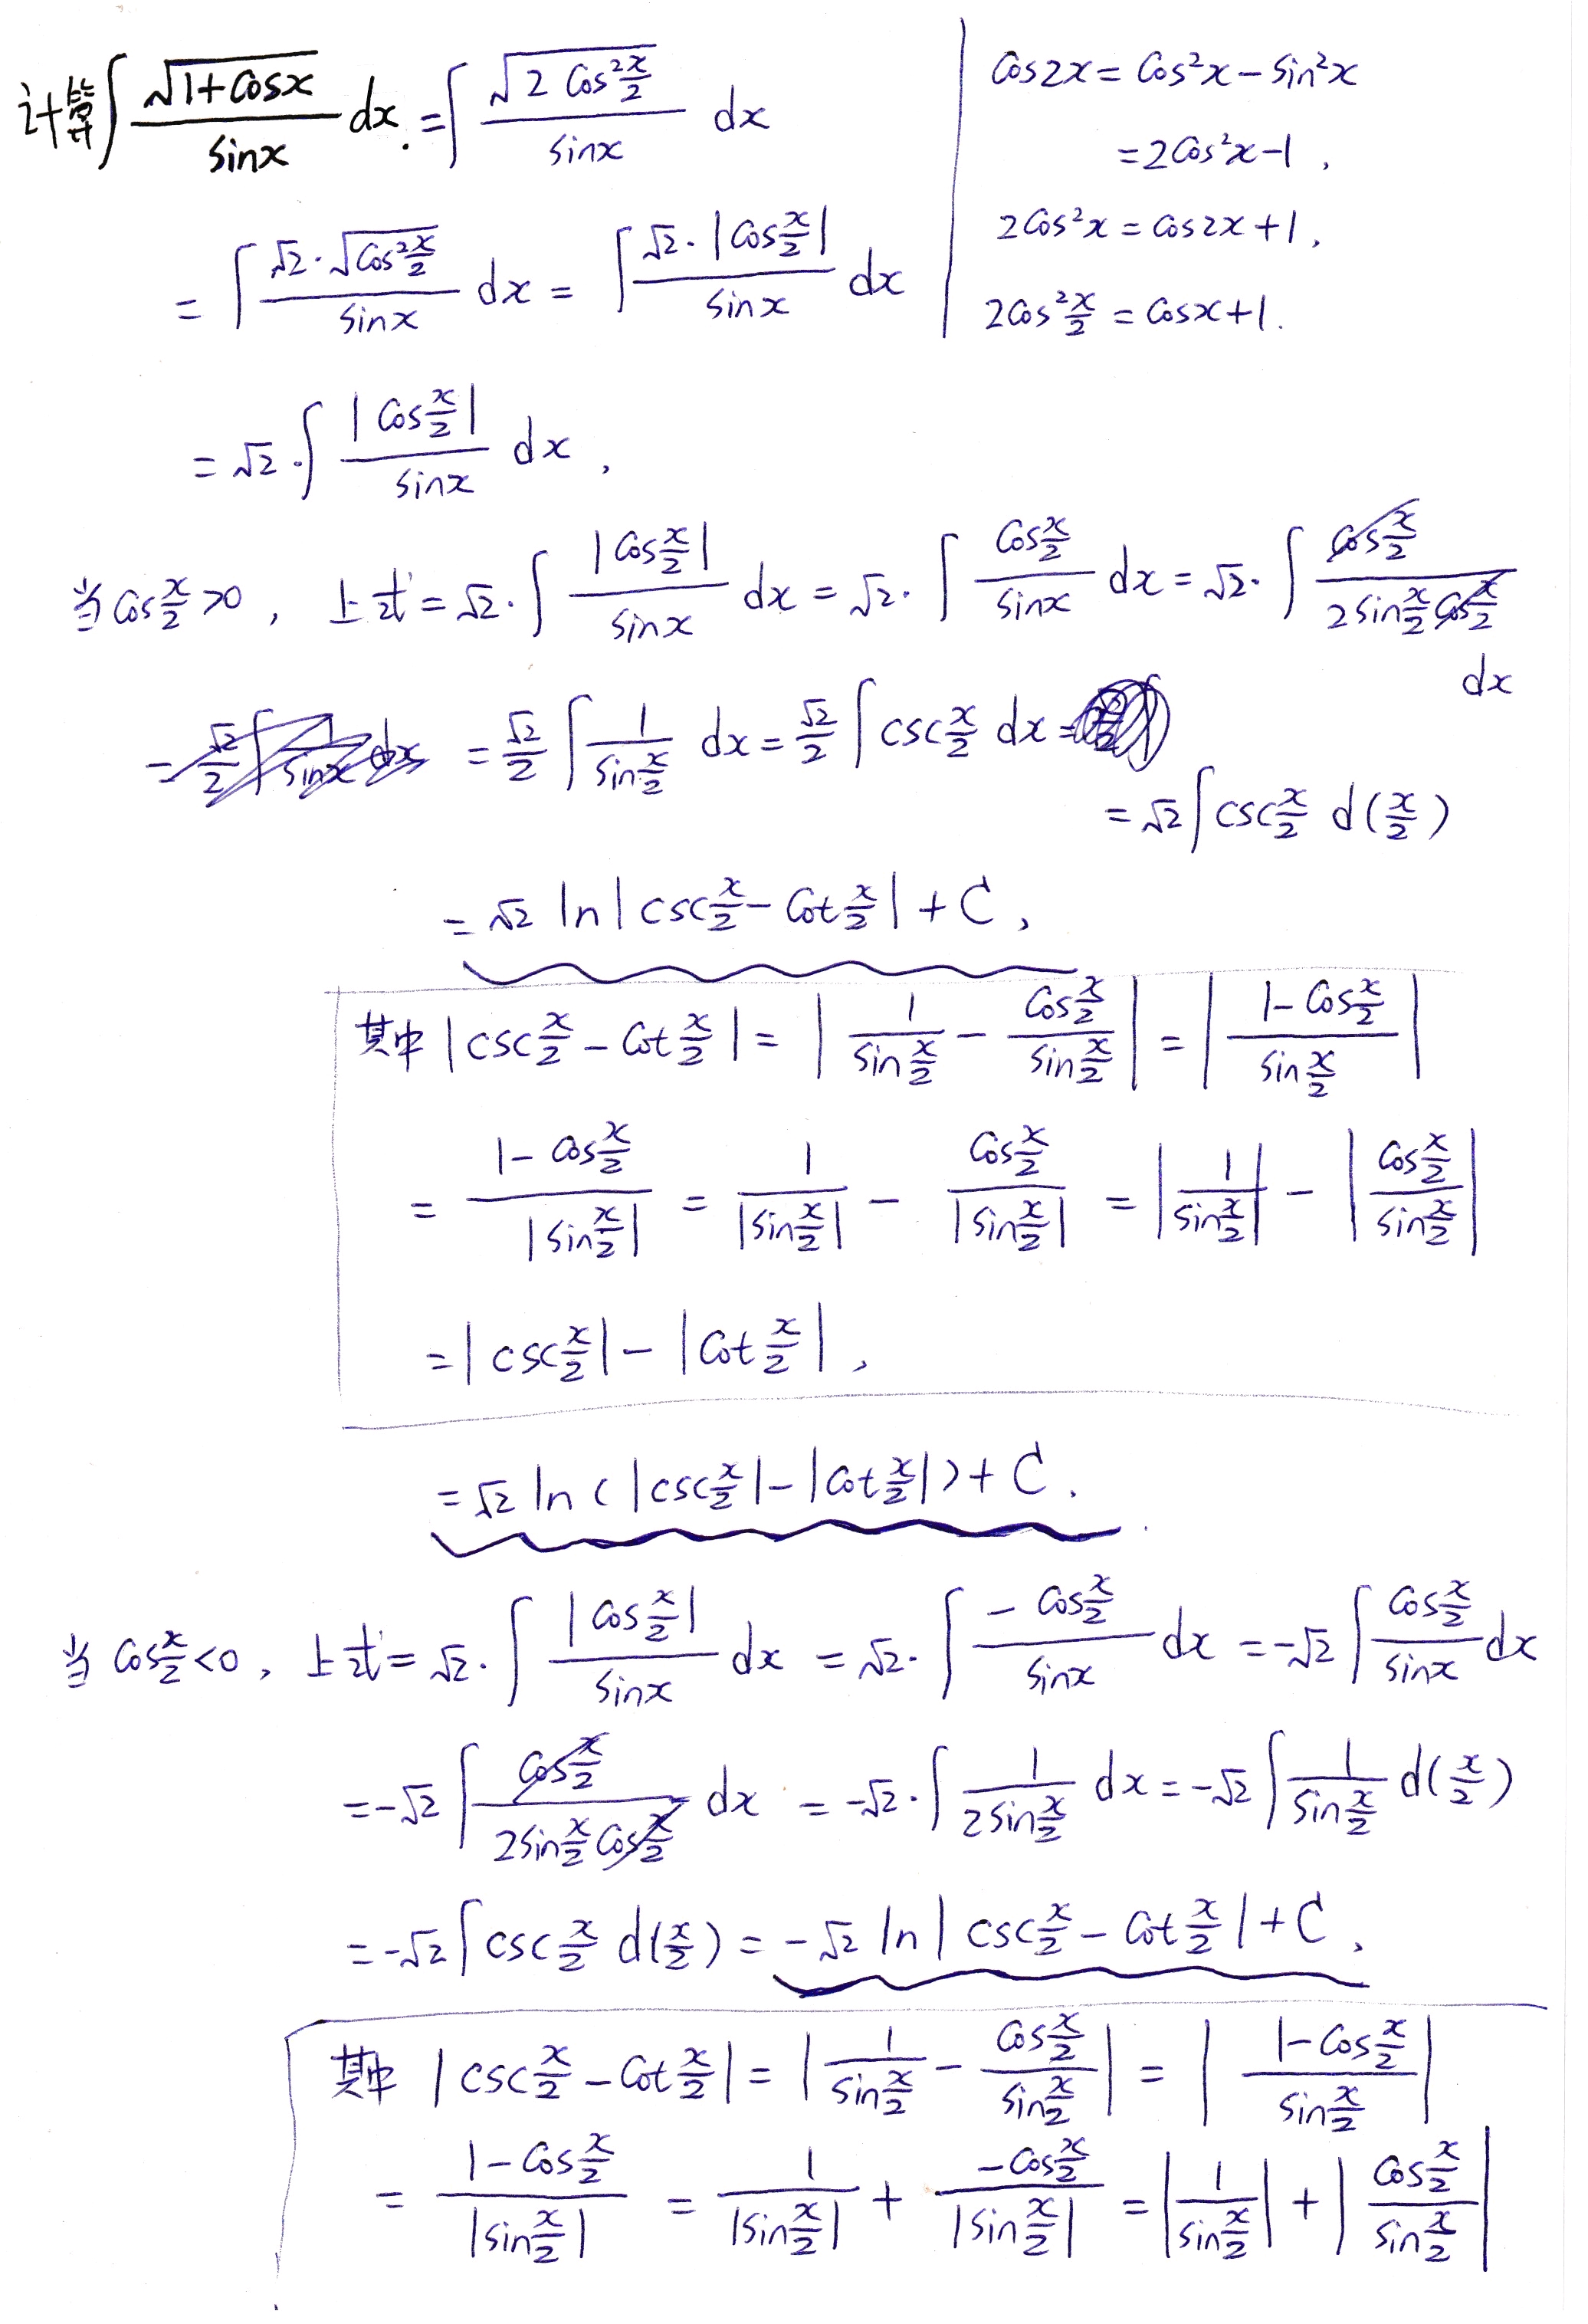 计算∫ √(1+cosx) / sinx dx. = ∫ √(2cos²(x/2)) / sinx dx
cos2x = cos²x − sin²x
= 2cos²x−1,
2cos²x = cos2x+1,
2cos²(x/2) = cosx+1.
= ∫ √2·√(cos²(x/2)) / sinx dx = ∫ √2·|cos(x/2)| / sinx dx
= √2·∫ |cos(x/2)| / sinx dx,
当cos(x/2)>0, 上式=√2·∫ |cos(x/2)| / sinx dx = √2·∫ cos(x/2) / sinx dx = √2·∫ cos(x/2) / (2sin(x/2)cos(x/2)) dx
= √2/2 ∫ 1/sinx dx = √2/2 ∫ 1/sin(x/2) dx = √2/2 ∫ csc(x/2) dx
= √2 ∫ csc(x/2) d(x/2)
= √2 ln|csc(x/2) − cot(x/2)| + C,
其中 |csc(x/2) − cot(x/2)| = |1/sin(x/2) − cos(x/2)/sin(x/2)| = |(1−cos(x/2))/sin(x/2)|
= (1−cos(x/2))/|sin(x/2)| = 1/|sin(x/2)| − cos(x/2)/|sin(x/2)| = |1/sin(x/2)| − |cos(x/2)/sin(x/2)|
= |csc(x/2)| − |cot(x/2)|,
= √2 ln(|csc(x/2)| − |cot(x/2)|) + C.
当cos(x/2)<0, 上式=√2·∫ |cos(x/2)| / sinx dx = √2·∫ −cos(x/2) / sinx dx = −√2 ∫ cos(x/2) / sinx dx
= −√2 ∫ cos(x/2) / (2sin(x/2)cos(x/2)) dx = −√2·∫ 1/(2sin(x/2)) dx = −√2 ∫ 1/sin(x/2) d(x/2)
= −√2 ∫ csc(x/2) d(x/2) = −√2 ln|csc(x/2) − cot(x/2)| + C,
其中 |csc(x/2) − cot(x/2)| = |1/sin(x/2) − cos(x/2)/sin(x/2)| = |(1−cos(x/2))/sin(x/2)|
= (1−cos(x/2))/|sin(x/2)| = 1/|sin(x/2)| + −cos(x/2)/|sin(x/2)| = |1/sin(x/2)| + |cos(x/2)/sin(x/2)|